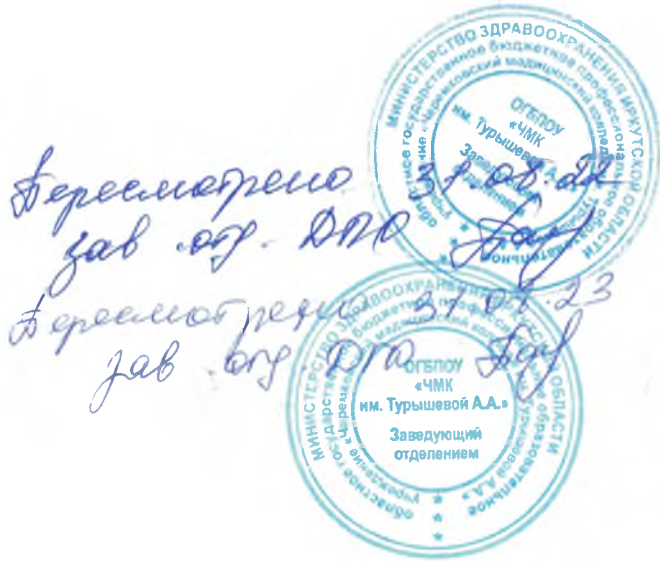 МИНИСТЕРСТВО ЗДРАВООХРАНЕНИЯ ИРКУТСКОЙ ОБЛАСТИ
областное государственное бюджетное профессиональное образовательное
учреждение «Черемховский медицинский колледж им. Турышевой А.А.»
ОГБПОУ
«ЧМК
им. Турышевой А.А.»
Заведующий
отделением
Пересмотрено 31.08.22
зав отд. ДПО
Пересмотрено 31.08.23
зав отд ДПО
МИНИСТЕРСТВО ЗДРАВООХРАНЕНИЯ ИРКУТСКОЙ ОБЛАСТИ
областное государственное бюджетное профессиональное образовательное
учреждение «Черемховский медицинский колледж им. Турышевой А.А.»
ОГБПОУ
«ЧМК
им. Турышевой А.А.»
Заведующий
отделением